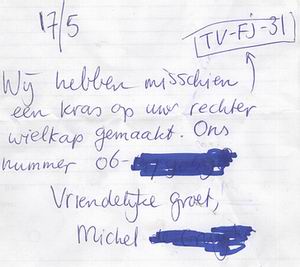 17/5
TV-FJ-31
Wij hebben misschien
een kras op uw rechter
wielkap gemaakt. Ons
nummer 06-
Vriendelijke groet,
Michel